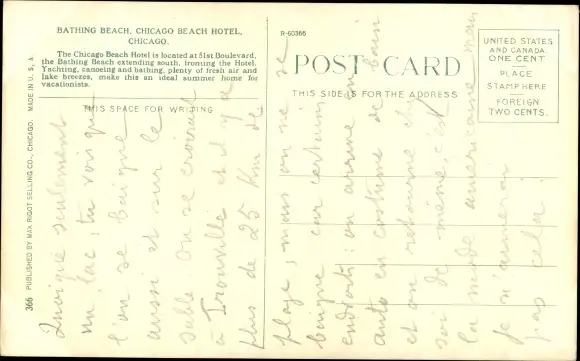 BATHING BEACH, CHICAGO BEACH HOTEL,
CHICAGO.
The Chicago Beach Hotel is located at 51st Boulevard,
the Bathing Beach extending south, fronting the Hotel.
Yachting, canoeing and bathing, plenty of fresh air and
lake breezes, make this an ideal summer home for
vacationists.
THIS SPACE FOR WRITING
366 PUBLISHED BY MAX RIGOT SELLING CO., CHICAGO. MADE IN U. S. A.
R-60366
POST CARD
THIS SIDE IS FOR THE ADDRESS
UNITED STATES
AND CANADA
ONE CENT
PLACE
STAMP HERE
FOREIGN
TWO CENTS.
Quoique seulement
un lac, tu vois que
l'on se baigne
aussi et sur le
sable on se croirait
à Trouville et il y a
plus de 25 Km de
plage, mais on ne se
baigne que certains
endroits: on arrive en
auto en costume de bain
et on retourne chez
soi de même, c'est
la mode américaine mais
je n'aimerai
pas cela.